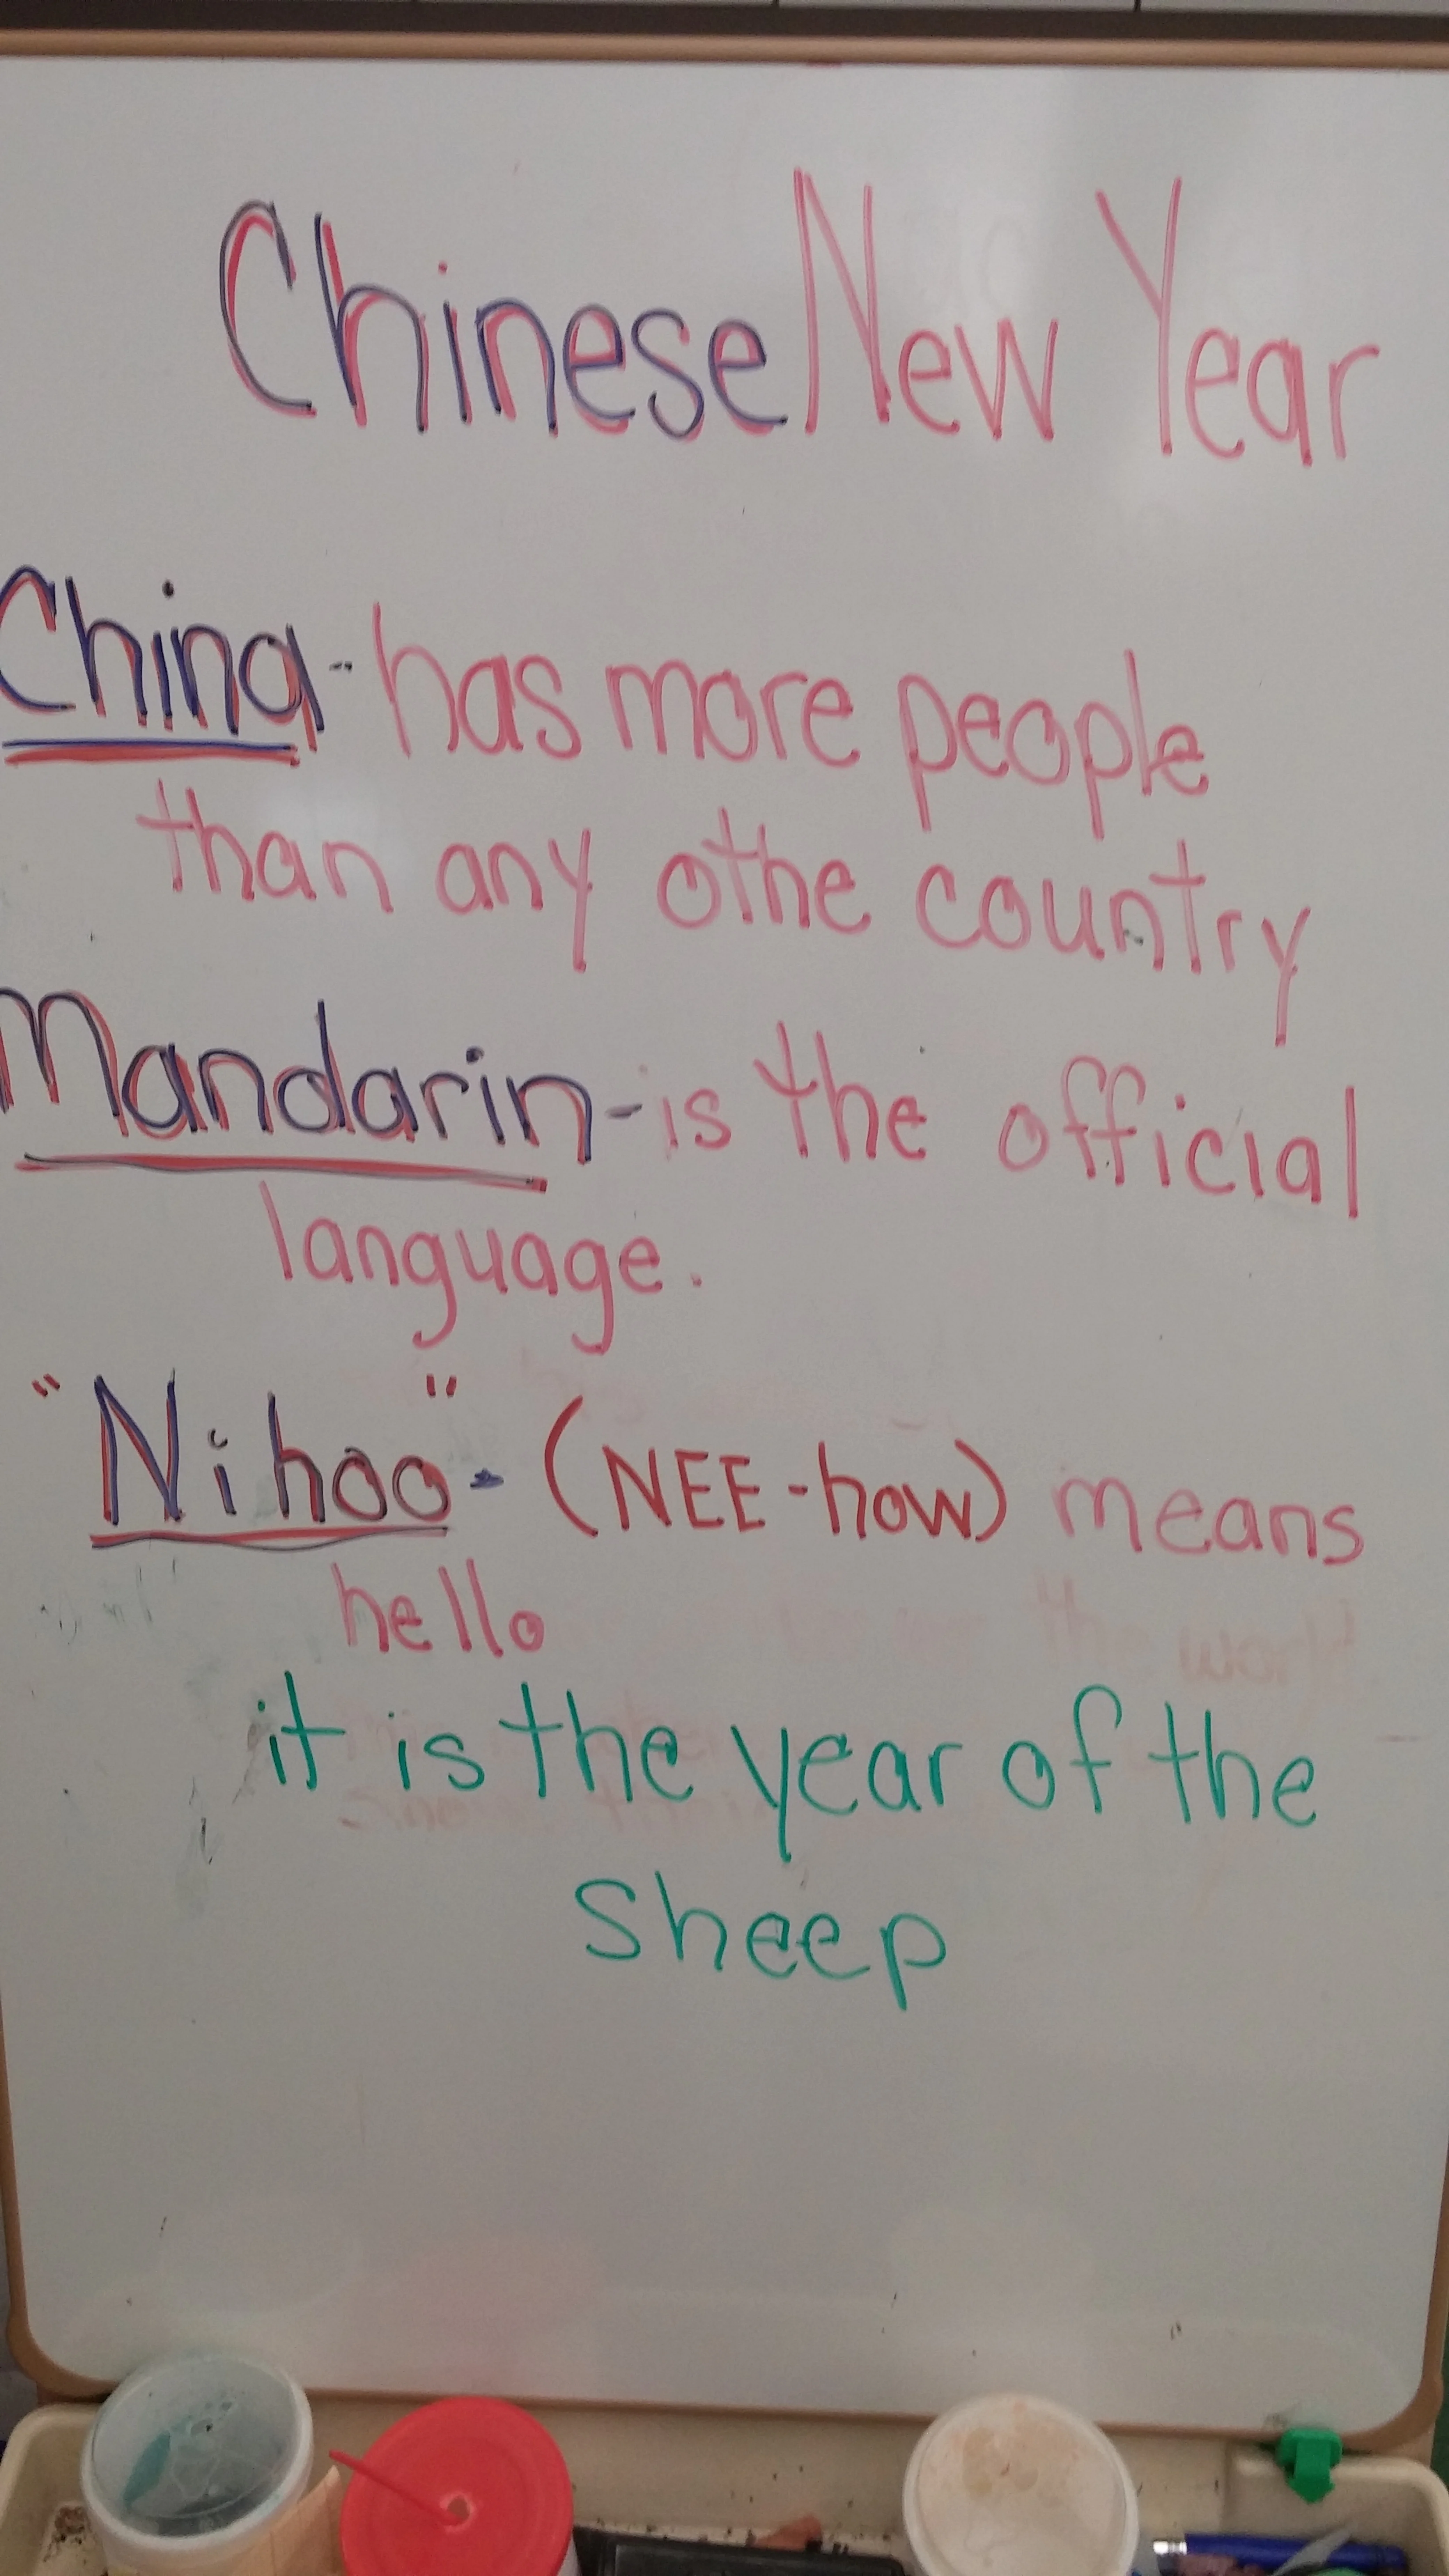 Chinese New Year
China - has more people
than any othe country
Mandarin - is the official
language.
"Nihao" - (NEE-how) means
hello
it is the year of the
Sheep